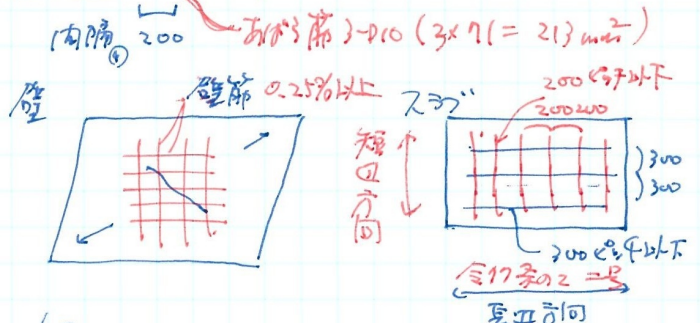 間隔④ 200 あばら筋 3-D10 (3×71=213mm²)
壁 壁筋 0.25%以上
スラブ 200ピッチ以下
200 200
短辺方向
300
300
300ピッチ以下
長辺方向